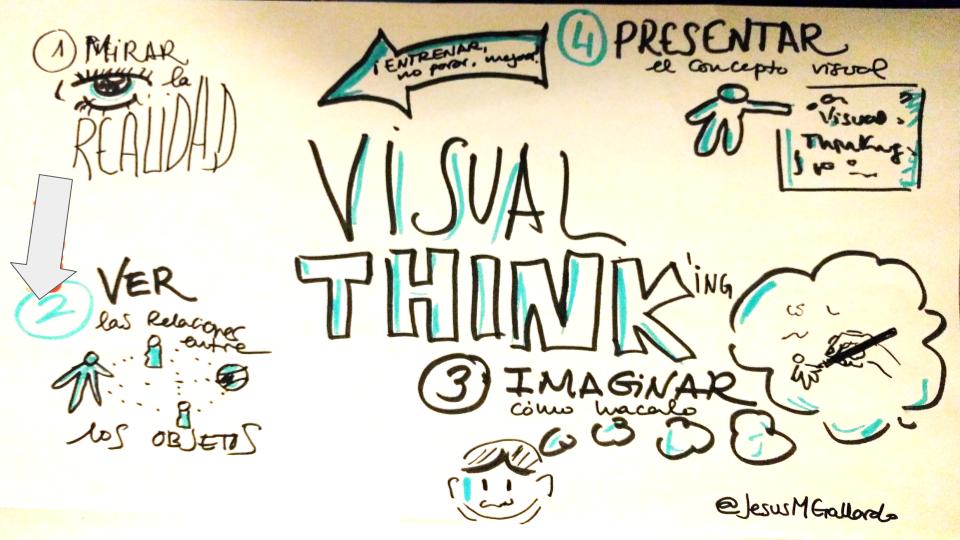 1 MIRAR
la
REALIDAD
¡ENTRENAR,
no parar, mejorar!
4 PRESENTAR
el concepto visual
Visual
Thinking
VISUAL
THINK'ING
2 VER
las Relaciones
entre
los OBJETOS
3 IMAGINAR
cómo hacerlo
@JesusMGallardo